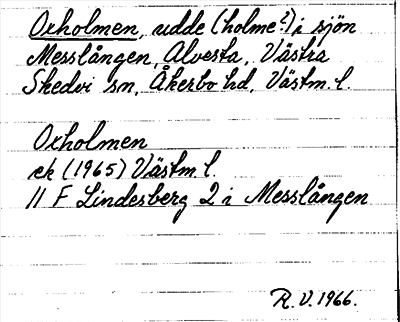 Oxholmen, udde (holme?) i sjön
Messlången, Alvesta, Västra
Skedvi sn, Åkerbo hd, Västm. l.
Oxholmen
ek (1965) Västm l.
11 F Lindesberg 2 i Messlången
R. V. 1966.